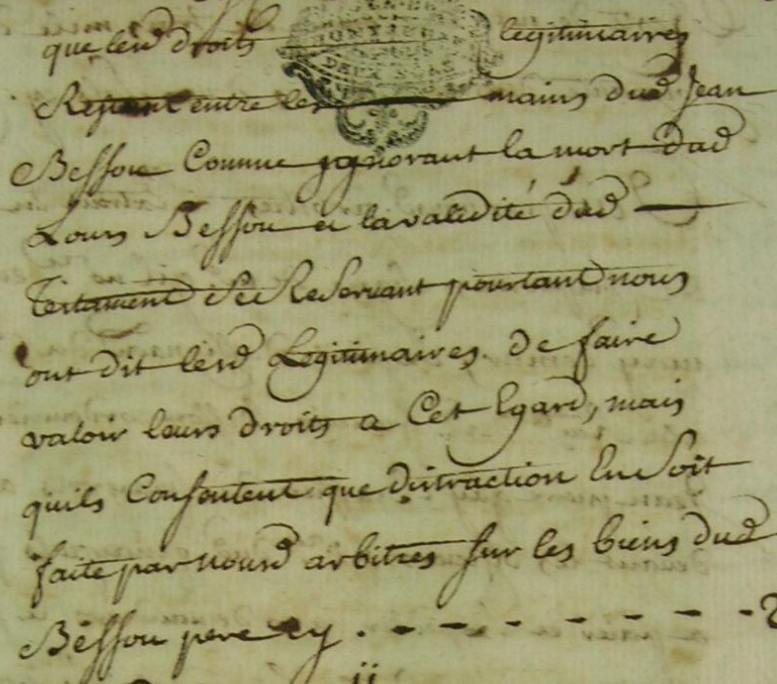 que lesd droits legitimaires
Restent entre les mains dud Jean
Bessou Comme ignorant la mort dud
Louis Bessou et la validité dud
Testament se Reservant pourtant nous
ont dit lesd Legitimaires de faire
valoir leurs droits a Cet Egard, mais
quils Consentent que distraction En soit
faite par nousd arbitres sur les biens dud
Bessou pere cy